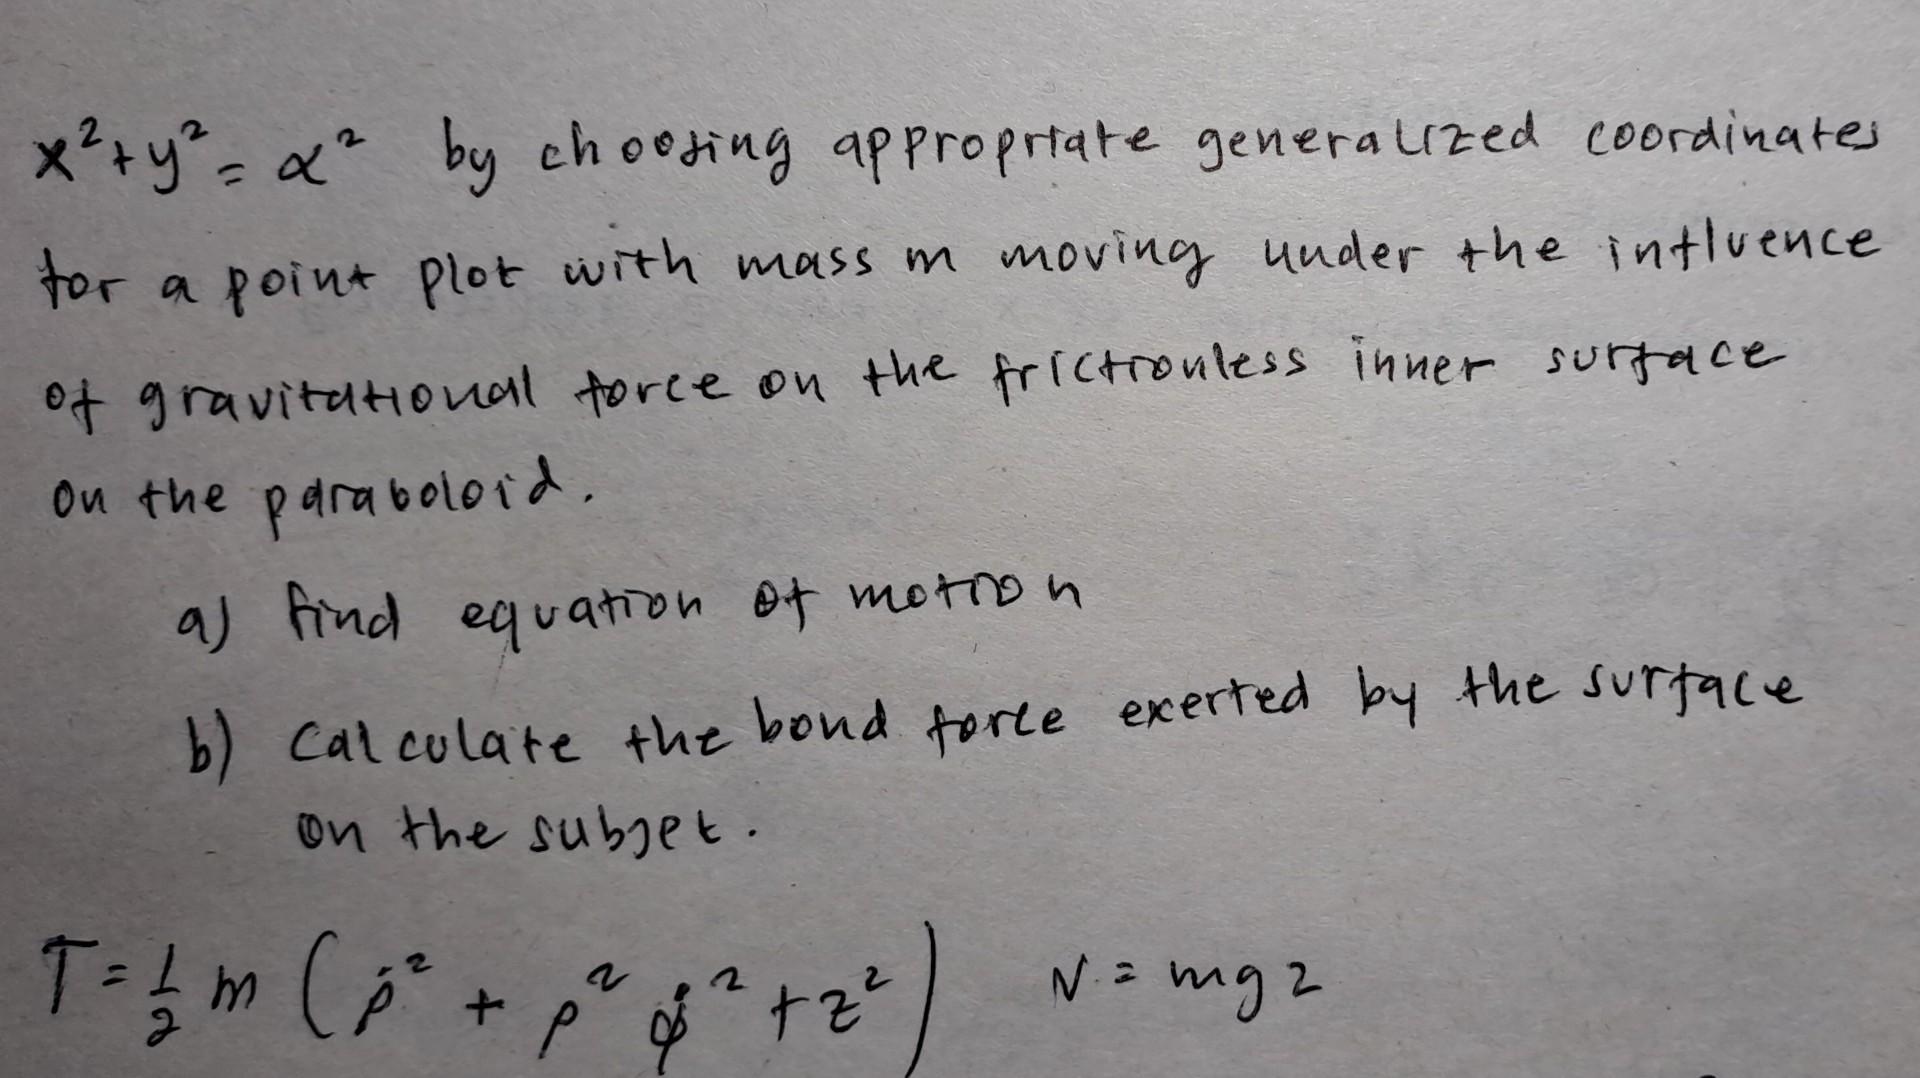 x²+y² = α² by choosing appropriate generalized coordinates
for a point plot with mass m moving under the influence
of gravitational force on the frictionless inner surface
on the paraboloid.
a) find equation of motion
b) Calculate the bond force exerted by the surface
on the subjet.
T = 1/2 m (ρ̇² + ρ² φ̇² + z²) V = mgz